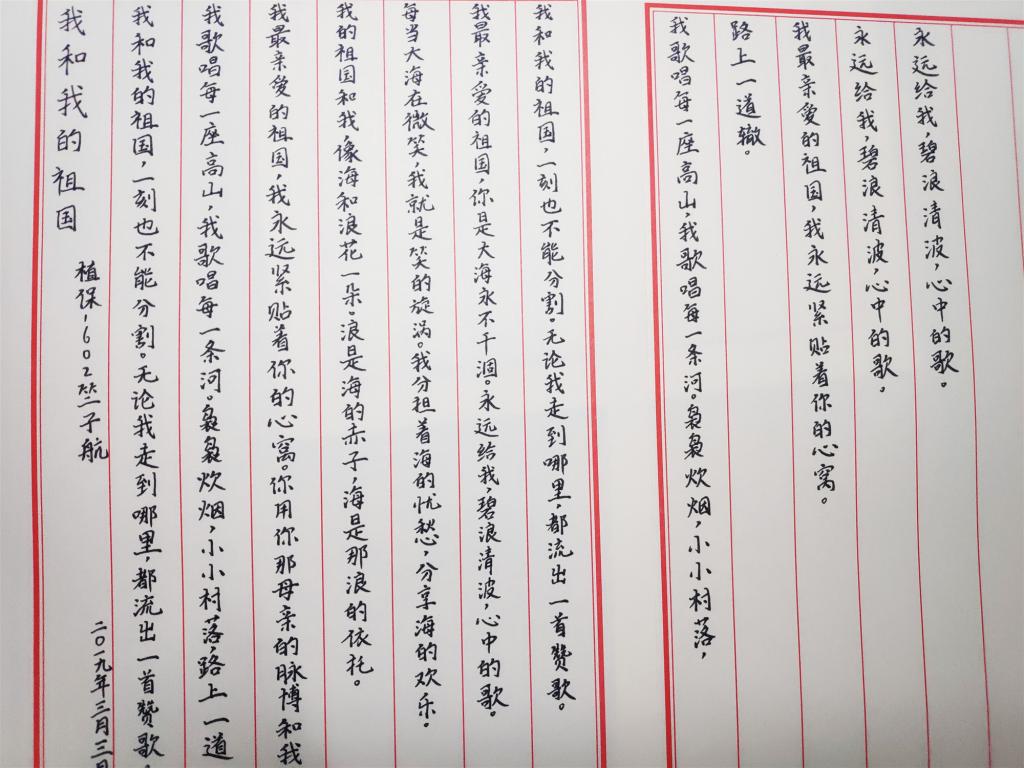 我和我的祖国
植保1602竺子航
二〇一九年三月三日
我和我的祖国,一刻也不能分割。无论我走到哪里,都流出一首赞歌。
我歌唱每一座高山,我歌唱每一条河。袅袅炊烟,小小村落,路上一道
我最亲爱的祖国,我永远紧贴着你的心窝。你用你那母亲的脉博和我
我的祖国和我,像海和浪花一朵。浪是海的赤子,海是那浪的依托。
每当大海在微笑,我就是笑的旋涡。我分担着海的忧愁,分享海的欢乐。
我最亲爱的祖国,你是大海永不干涸。永远给我,碧浪清波,心中的歌。
我和我的祖国,一刻也不能分割。无论我走到哪里,都流出一首赞歌。
我歌唱每一座高山,我歌唱每一条河。袅袅炊烟,小小村落,
路上一道辙。
我最亲爱的祖国,我永远紧贴着你的心窝。
永远给我,碧浪清波,心中的歌。
永远给我,碧浪清波,心中的歌。